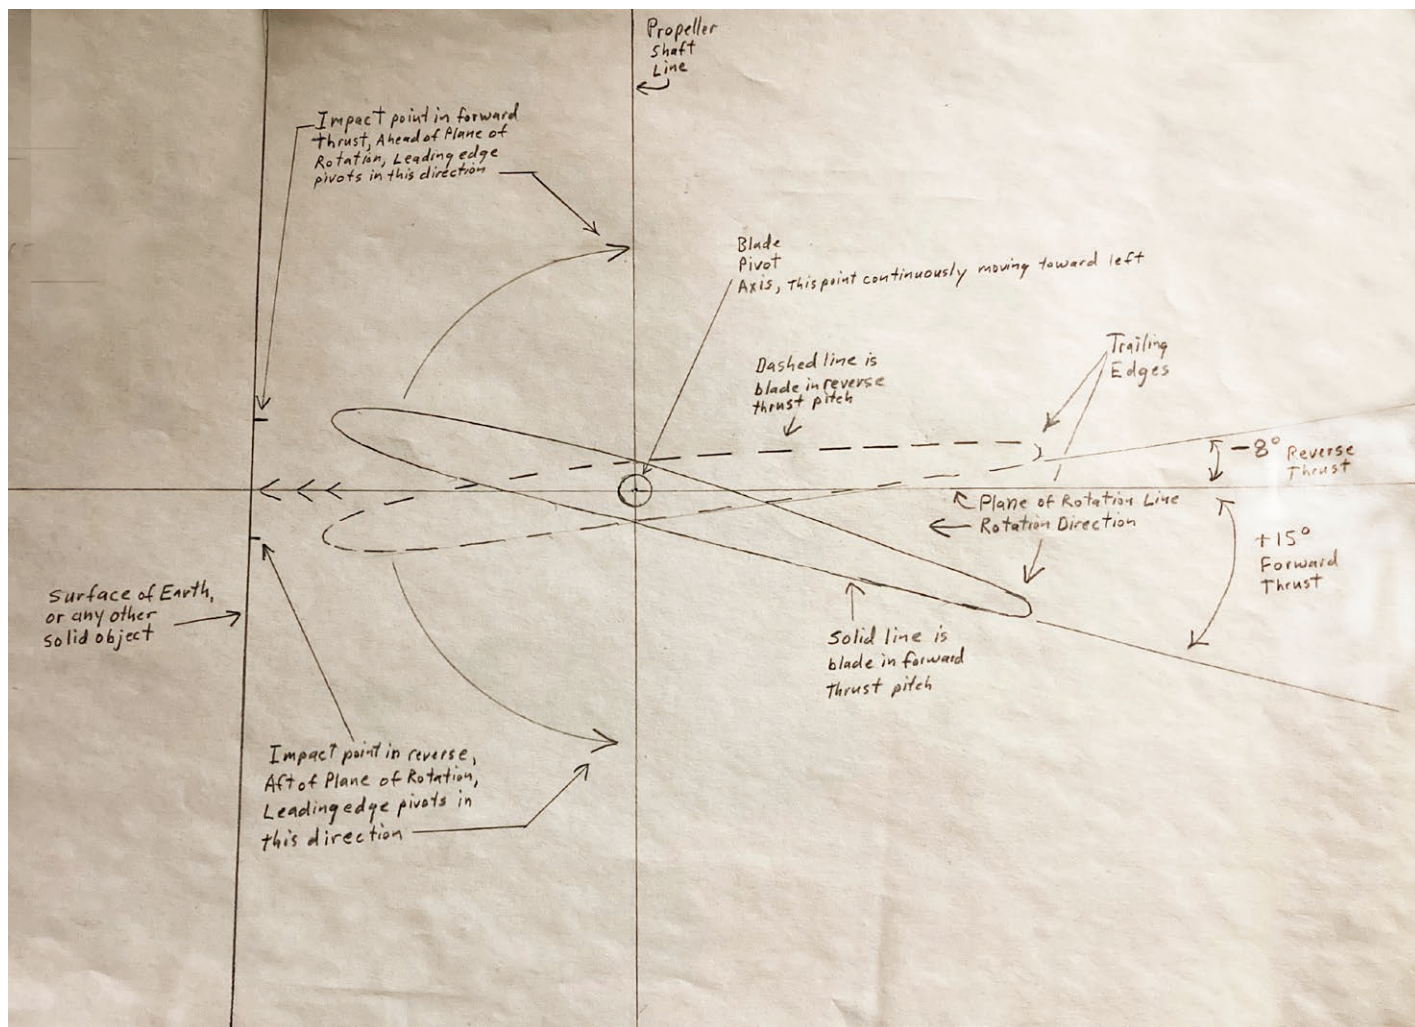 Propeller
Shaft
Line
Impact point in forward
thrust, Ahead of Plane of
Rotation, Leading edge
pivots in this direction
Blade
Pivot
Axis, This point continuously moving toward left
Trailing
Edges
Dashed line is
blade in reverse
thrust pitch
-8° Reverse
Thrust
Plane of Rotation Line
Rotation Direction
+15°
Forward
Thrust
Surface of Earth,
or any other
solid object
Solid line is
blade in forward
Thrust pitch
Impact point in reverse,
Aft of Plane of Rotation,
Leading edge pivots in
this direction